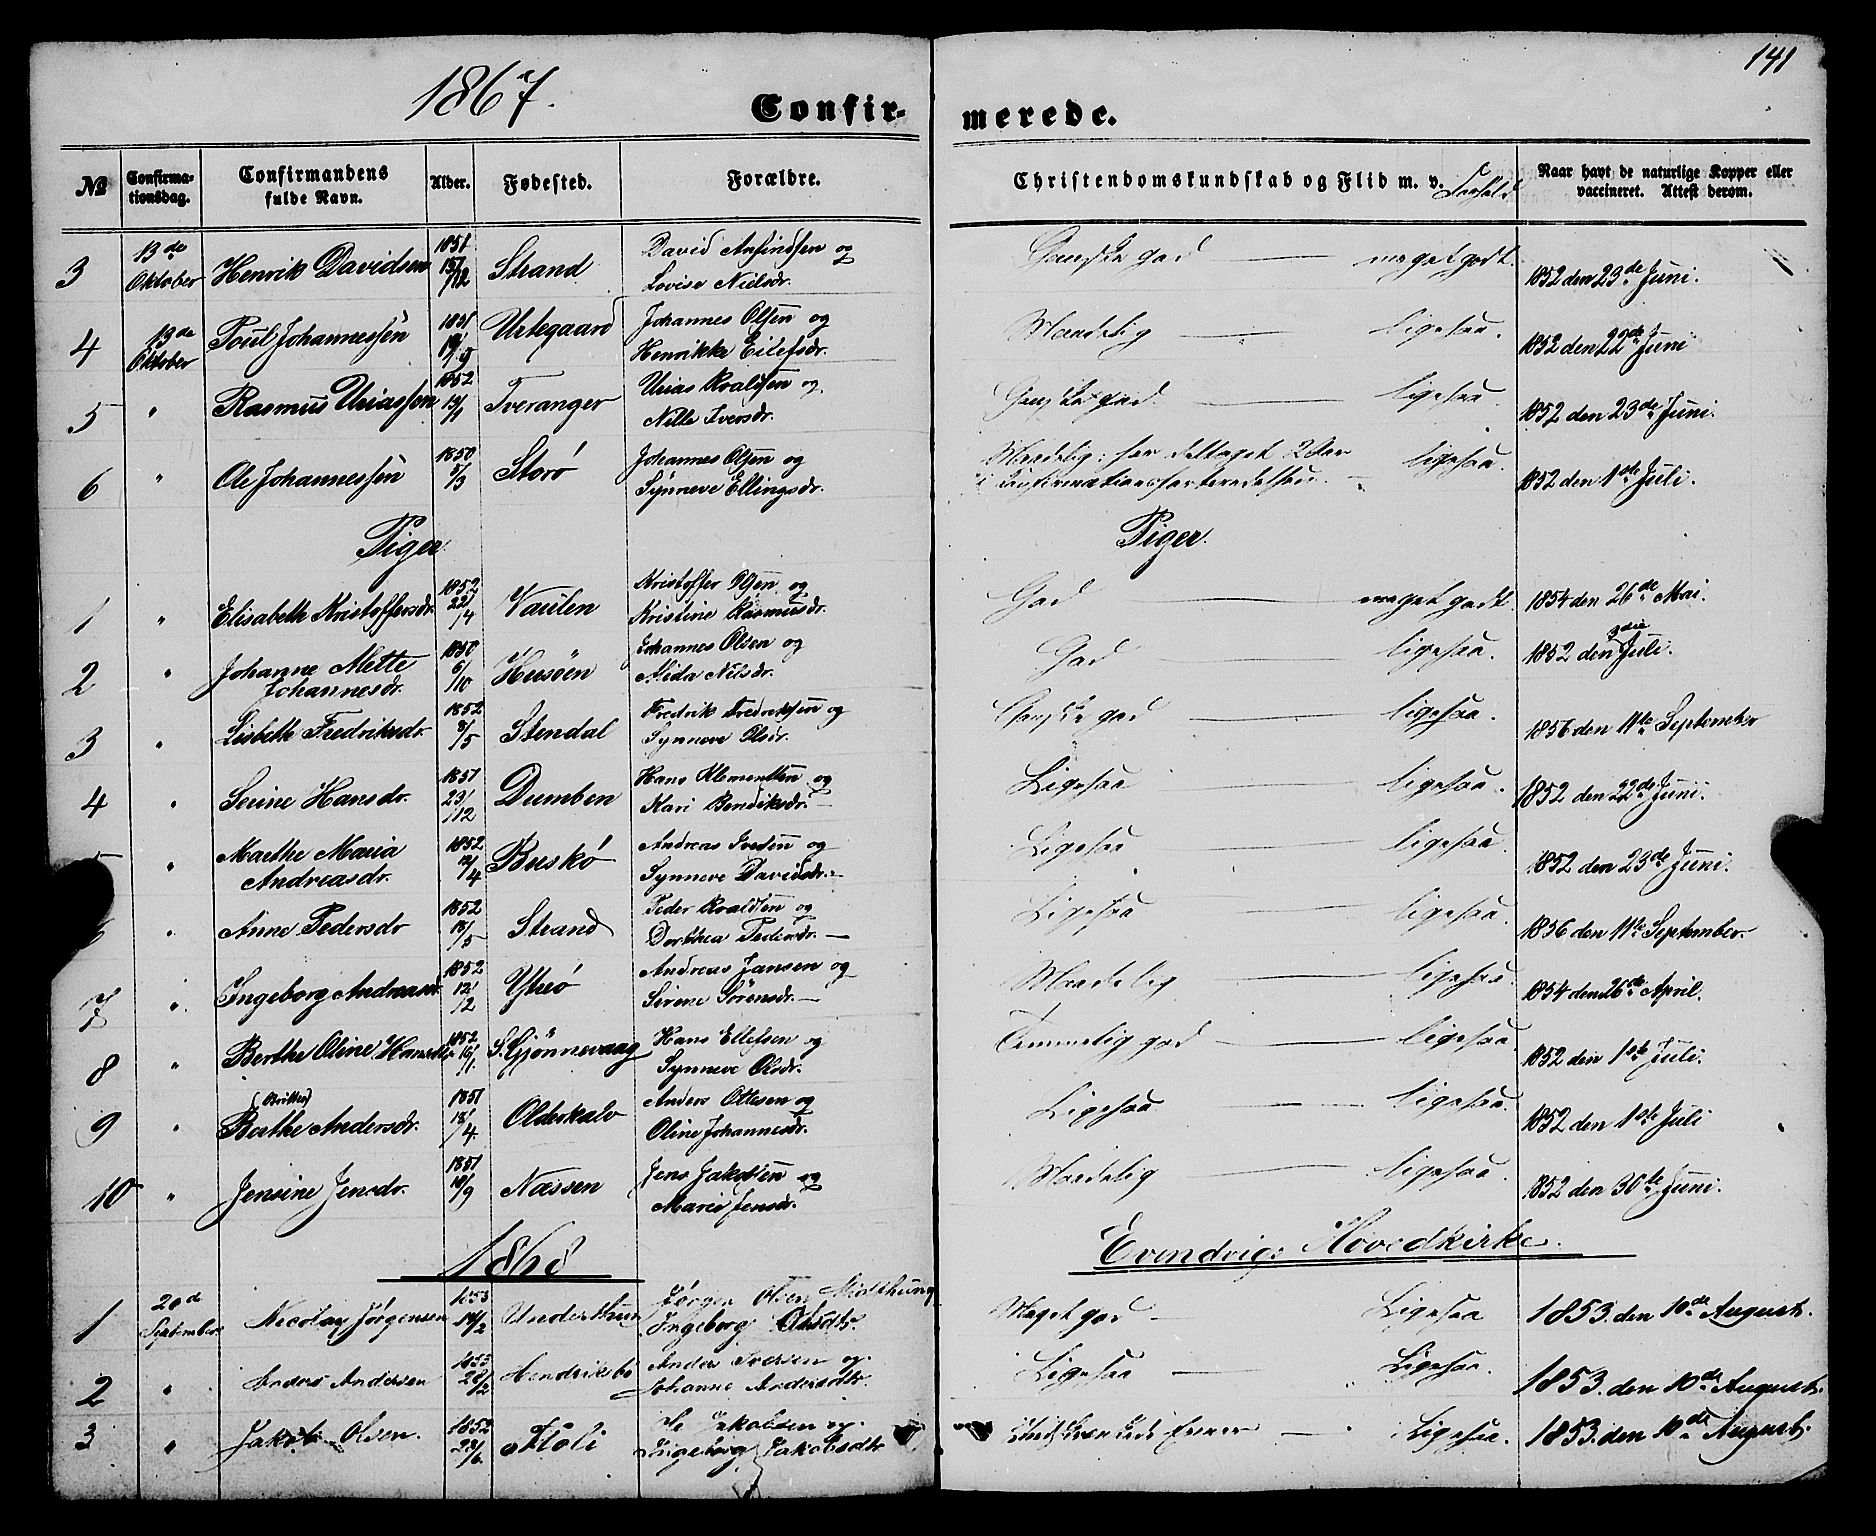 141
1867.
Confirmerede.
№ Confirmationsdag. Confirmandens fulde Navn. Alder. Fødested. Forældre. Christendomskundskab og Flid m. v. Forhold Naar havt de naturlige Kopper eller vaccineret. Attest derom.
3 13de Oktober Henrik Davidsen 1851 Strand David Ansindsen og Lovise Nielsdr. Ganske god — meget godt. 1852 den 23de Juni.
4 13de Oktober Poul Johannessen 1851 Urtegaard Johannes Olsen og Henrikke Eilefsdr. Maadelig — ligesaa. 1852 den 22de Juni
5 " Rasmus Uriassen 1852 13/1 Tveranger Urias Roaldsen og Nille Iversdr. Ganske god. — ligesaa. 1852 den 23de Juni.
6 " Ole Johannessen 1850 5/3 Storö Johannes Olsen og Synneve Ellingsdr. Maadelig: har deltaget 2 Aar i Confirmationsforberedelsen. — ligesaa. 1852 den 1ste Juli.
Piger. Piger.
1 " Elisabeth Kristoffersdr. 1852 22/4 Vaulen Kristoffer Olsen og Kristine Rasmusdr. God — meget godt. 1854 den 26de Mai.
2 " Johanne Mette Johannesdr. 1850 6/10 Husöen Johannes Olsen og Alida Nilsdr. God — ligesaa. 1852 den 3die Juli.
3 " Lisbeth Fredriksdr. 1852 8/5 Stendal Fredrik Fredriksen og Synneve Olsdr. Ganske god — ligesaa. 1856 den 11te September
4 " Serine Hansdr. 1851 23/12 Dumben Hans Klementsen og Kari Bendiksdr. — Ligesaa — ligesaa. 1852 den 22de Juni.
" Marthe Maria Andreasdr. 1852 12/4 Buskö Andreas Iversen og Synneve Davidsdr. — Ligesaa — ligesaa. 1852 den 23de Juni.
" Anne Pedersdr 1852 18/5 Strand Peder Roaldsen og Dorthea Pedersdr. — Ligesaa — ligesaa. 1856 den 11te September.
7 " Ingeborg Andreasdr. 1852 12/2 Ytreö Andreas Jansen og Sirene Sörensdr. — Maadelig — ligesaa. 1854 den 26de April.
8 " Berthe Oline Hansdr 1852 16/1. S. Gjönnevaag Hans Ellefsen og Synneve Olsdr. Temmelig god — ligesaa. 1852 den 1ste Juli.
9 " (Brithe) Berthe Andersdr. 1851 18/4. Olderkalv Anders Ottesen og Oline Johannesdr. Ligesaa — ligesaa. 1852 den 1ste Juli
10 " Jensine Jensdr. 1851 10/9 Næssen Jens Jakobsen og Marie Jensdr. Maadelig — ligesaa. 1852 den 30te Juni.
1868 Evindvigs Hovedkirke.
1 20d September Nicolay Jörgensen 1853 14/2 Underthun Jörgen Olsen Midthun Ingeborg Olsdtr. Meget god — Ligesaa 1853. den 10de August.
2 " Anders Andersen 1853 28/2 Hendriksbö Anders Iversen og Johanne Andersdtr. Ligesaa — Ligesaa. 1853. den 10de August.
3 " Jakob Olsen. 1852 23/6 Flöli Ole Jakobsen og Ingeborg Jakobsdtr — Ligesaa. 1853. den 10de August.